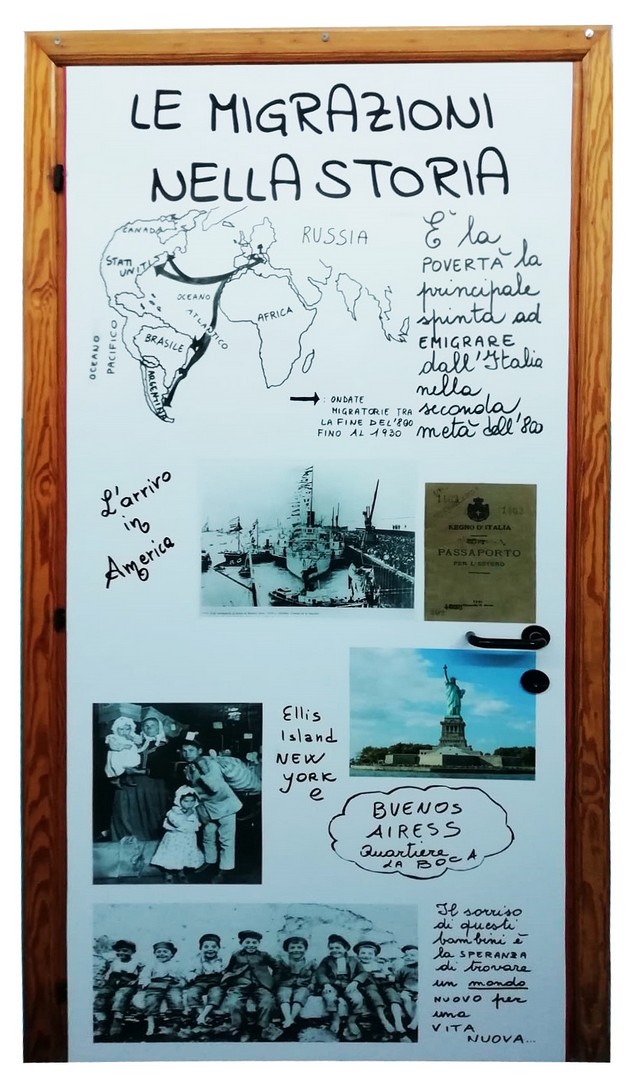 LE MIGRAZIONI
NELLA STORIA
CANADA
STATI
UNITI
OCEANO
ATLANTICO
OCEANO
PACIFICO
BRASILE
ARGENTINA
AFRICA
RUSSIA
: ONDATE
MIGRATORIE TRA
LA FINE DEL'800
FINO AL 1930
È la
POVERTÀ la
principale
spinta ad
EMIGRARE
dall'Italia
nella
seconda
metà dell'800
L'arrivo
in
America
REGNO D'ITALIA
PASSAPORTO
PER L'ESTERO
Ellis
Island
NEW
YORK
e
BUENOS
AIRESS
Quartiere
LA BOCA
Il sorriso
di questi
bambini è
la SPERANZA
di trovare
un mondo
NUOVO per
una
VITA
NUOVA...